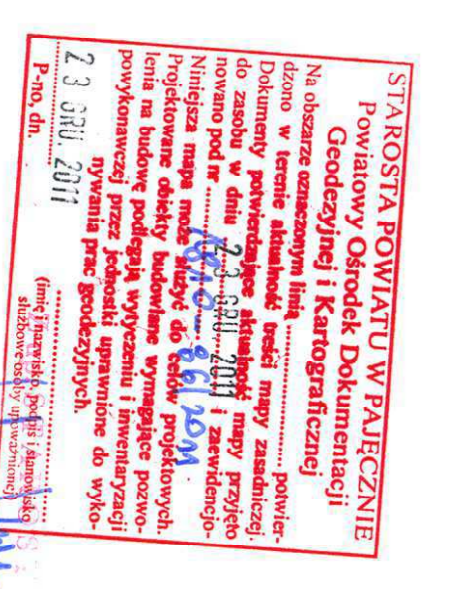 STAROSTA POWIATU W PAJĘCZNIE
Powiatowy Ośrodek Dokumentacji
Geodezyjnej i Kartograficznej
Na obszarze oznaczonym linią .................. potwier-
dzono w terenie aktualność treści mapy zasadniczej.
Dokumenty potwierdzające aktualność mapy przyjęto
do zasobu w dniu 23 GRU. 2011 i zaewidencjo-
nowano pod nr 86/2011
Niniejsza mapa może służyć do celów projektowych.
Projektowane obiekty budowlane wymagające pozwo-
lenia na budowę podlegają wytyczeniu i inwentaryzacji
powykonawczej przez jednostki uprawnione do wyko-
nywania prac geodezyjnych.
23 GRU. 2011
P-no, dn. ..................
(imię i nazwisko, podpis i stanowisko
służbowe osoby upoważnionej)